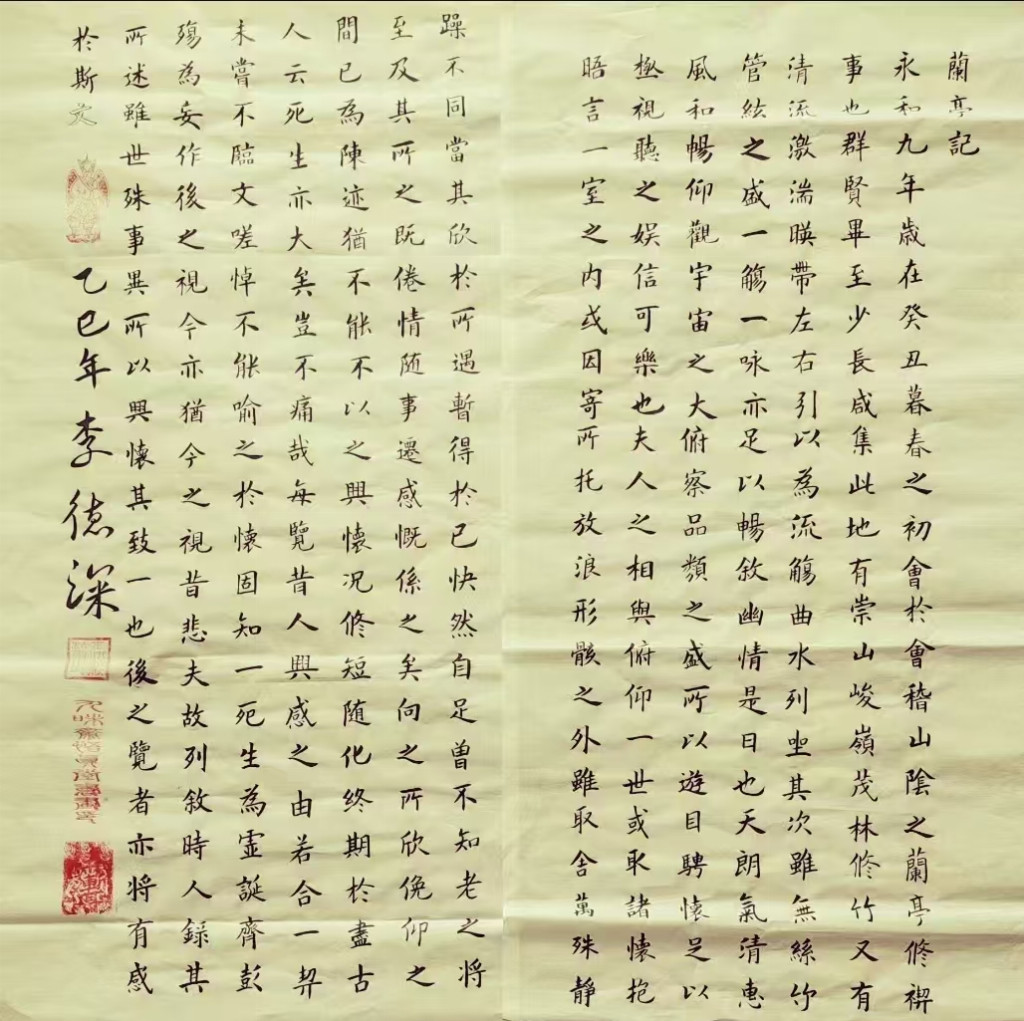 蘭亭記
永和九年歲在癸丑暮春之初會於會稽山陰之蘭亭修禊
事也群賢畢至少長咸集此地有崇山峻嶺茂林修竹又有
清流激湍暎帶左右引以為流觴曲水列坐其次雖無絲竹
管絃之盛一觴一咏亦足以暢敘幽情是日也天朗氣清惠
風和暢仰觀宇宙之大俯察品類之盛所以遊目騁懷足以
極視聽之娛信可樂也夫人之相與俯仰一世或取諸懷抱
晤言一室之内或因寄所托放浪形骸之外雖取舍萬殊靜
躁不同當其欣於所遇暫得於已快然自足曾不知老之將
至及其所之既倦情随事遷感慨係之矣向之所欣俛仰之
間已為陳迹猶不能不以之興懷况修短随化终期於盡古
人云死生亦大矣豈不痛哉每覽昔人興感之由若合一契
未嘗不臨文嗟悼不能喻之於懷固知一死生為虛誕齊彭
殤為妄作後之視今亦猶今之視昔悲夫故列敘時人録其
所述雖世殊事異所以興懷其致一也後之覽者亦将有感
於斯文
乙巳年李德深